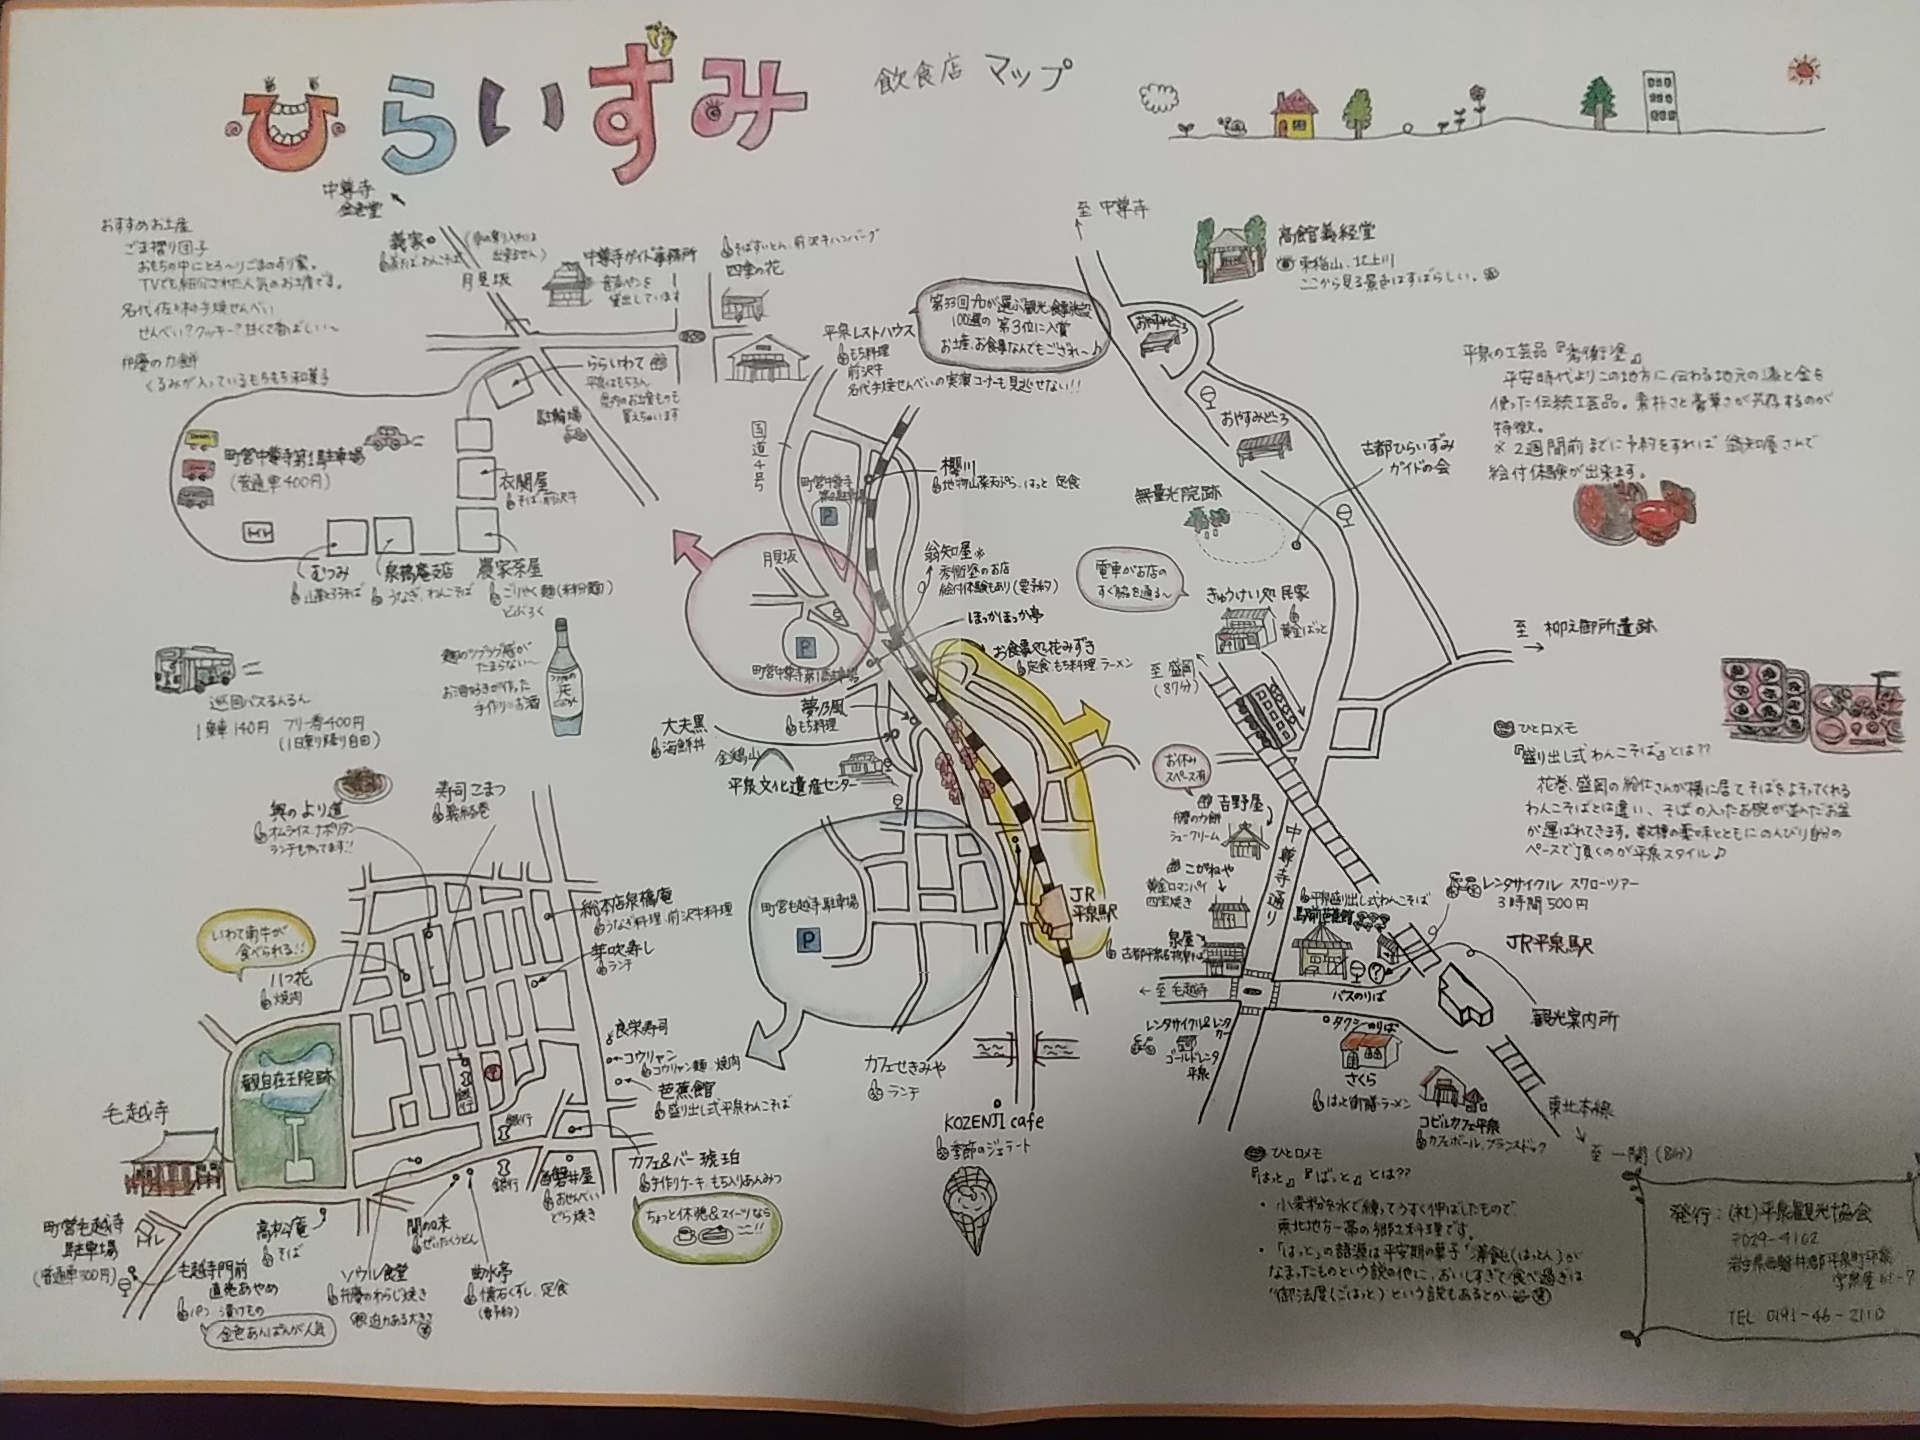 ひらいずみ
飲食店 マップ
中尊寺
金色堂
おすすめお土産
ごま摺り団子
おもちの中にとろ〜りごまのすり蜜。
TVでも紹介された人気のお土産です。
名代佐々木の手焼せんべい
せんべい?クッキー?甘くて香ばしい〜
弁慶の力餅
くるみが入っているもちもち和菓子
義家
月見坂
中尊寺ガイド事務所
音声ペンを
貸出しています
そばすいとん、前沢牛ハンバーグ
四季の花
平泉レストハウス
もち料理
前沢牛
名代手焼せんべいの実演コーナーも見逃せない!!
第33回プロが選ぶ観光・食事施設
100選の 第3位に入賞
お土産、お食事なんでもござれ〜♪
ららいわて
平泉はもちろん
県内のお土産ものも
買えちゃいます
駐輪場
町営中尊寺第1駐車場
(普通車400円)
衣関屋
そば、前沢牛
むつみ
山菜とろろそば
泉橋庵支店
うなぎ、わんこそば
農家茶屋
ごりやく麺(米粉麺)
どぶろく
国道4号
町営中尊寺
第2駐車場
P
櫻川
地物山菜天ぷら、はっと 定食
翁知屋※
秀衡塗のお店
絵付体験もあり(要予約)
ほっかほっか亭
お食事処花みずき
定食 もち料理 ラーメン
月見坂
P
町営中尊寺第1駐車場
夢乃風
もち料理
大夫黒
海鮮丼
金鶏山
平泉文化遺産センター
町営毛越寺駐車場
P
JR
平泉駅
カフェせきみや
ランチ
KOZENJI cafe
季節のジェラート
巡回バスるんるん
1乗車 140円 フリー券400円
(1日乗り降り自由)
麹のツブツブ感が
たまらない〜
お酒好きが作った
手作りのお酒
興のより道
オムライス、ナポリタン
ランチもやってます!!
寿司こまつ
義経巻
総本店泉橋庵
うなぎ料理、前沢牛料理
芽吹寿し
ランチ
いわて南牛が
食べられる!!
八つ花
焼肉
良栄寿司
コウリャン
コウリャン麺、焼肉
芭蕉館
盛り出し式平泉わんこそば
観自在王院跡
毛越寺
銀行
銀行
銀行
カフェ&バー 琥珀
手作りケーキ、もち入りあんみつ
ちょっと休憩&スイーツなら
おせんべい
どら焼き
町営毛越寺
駐車場
(普通車300円)
トイレ
毛越寺門前
直売あやめ
パン 漬けもの
金色あんぱんが人気
高松庵
そば
ソウル食堂
弁慶のわらじ焼き
迫力ある大きさ
関の味
ぜいたくうどん
曲水亭
懐石くずし、定食
(要予約)
至 中尊寺
高館義経堂
束稲山、北上川
ここから見る景色はすばらしい。
おやすみどころ
おやすみどころ
古都ひらいずみ
ガイドの会
無量光院跡
平泉の工芸品『秀衡塗』
平安時代よりこの地方に伝わる地元の漆と金を
使った伝統工芸品。素朴さと豪華さが共存するのが
特徴。
※2週間前までに予約をすれば 翁知屋さんで
絵付体験が出来ます。
電車がお店の
すぐ脇を通る〜
きゅうけい処 民家
黄金はっと
至 盛岡
(87分)
至 柳之御所遺跡
お休み
スペース有
吉野屋
弁慶の力餅
シュークリーム
こがねや
黄金ロマンパイ
四宝焼き
泉屋
中尊寺通り
平泉盛り出し式わんこそば
駅前芭蕉館
レンタサイクル スワローツアー
3時間500円
JR平泉駅
バスのりば
観光案内所
←至 毛越寺
タクシーのりば
レンタサイクル&レンタカー
ゴールドレンタ
平泉
さくら
はっと御膳・ラーメン
コビルカフェ平泉
カフェボール、フランスドック
東北本線
至 一関(8分)
ひと口メモ
『盛り出し式わんこそば』とは??
花巻、盛岡の給仕さんが横に居てそばをよそってくれる
わんこそばとは違い、そばの入ったお椀が並んだお盆
が運ばれてきます。数種の薬味とともにのんびり自分の
ペースで頂くのが平泉スタイル♪
ひと口メモ
『はっと』『ばっと』とは??
・小麦粉を水で練ってうすく伸ばしたもので
東北地方一帯の郷土料理です。
・「はっと」の語源は平安期の菓子"薄飩(はっとん)が
なまったものという説の他に、おいしすぎて食べ過ぎは
"御法度(ごはっと)という説もあるとか
発行:(社)平泉観光協会
〒029-4102
岩手県西磐井郡平泉町平泉
字泉屋61-7
TEL 0191-46-2110